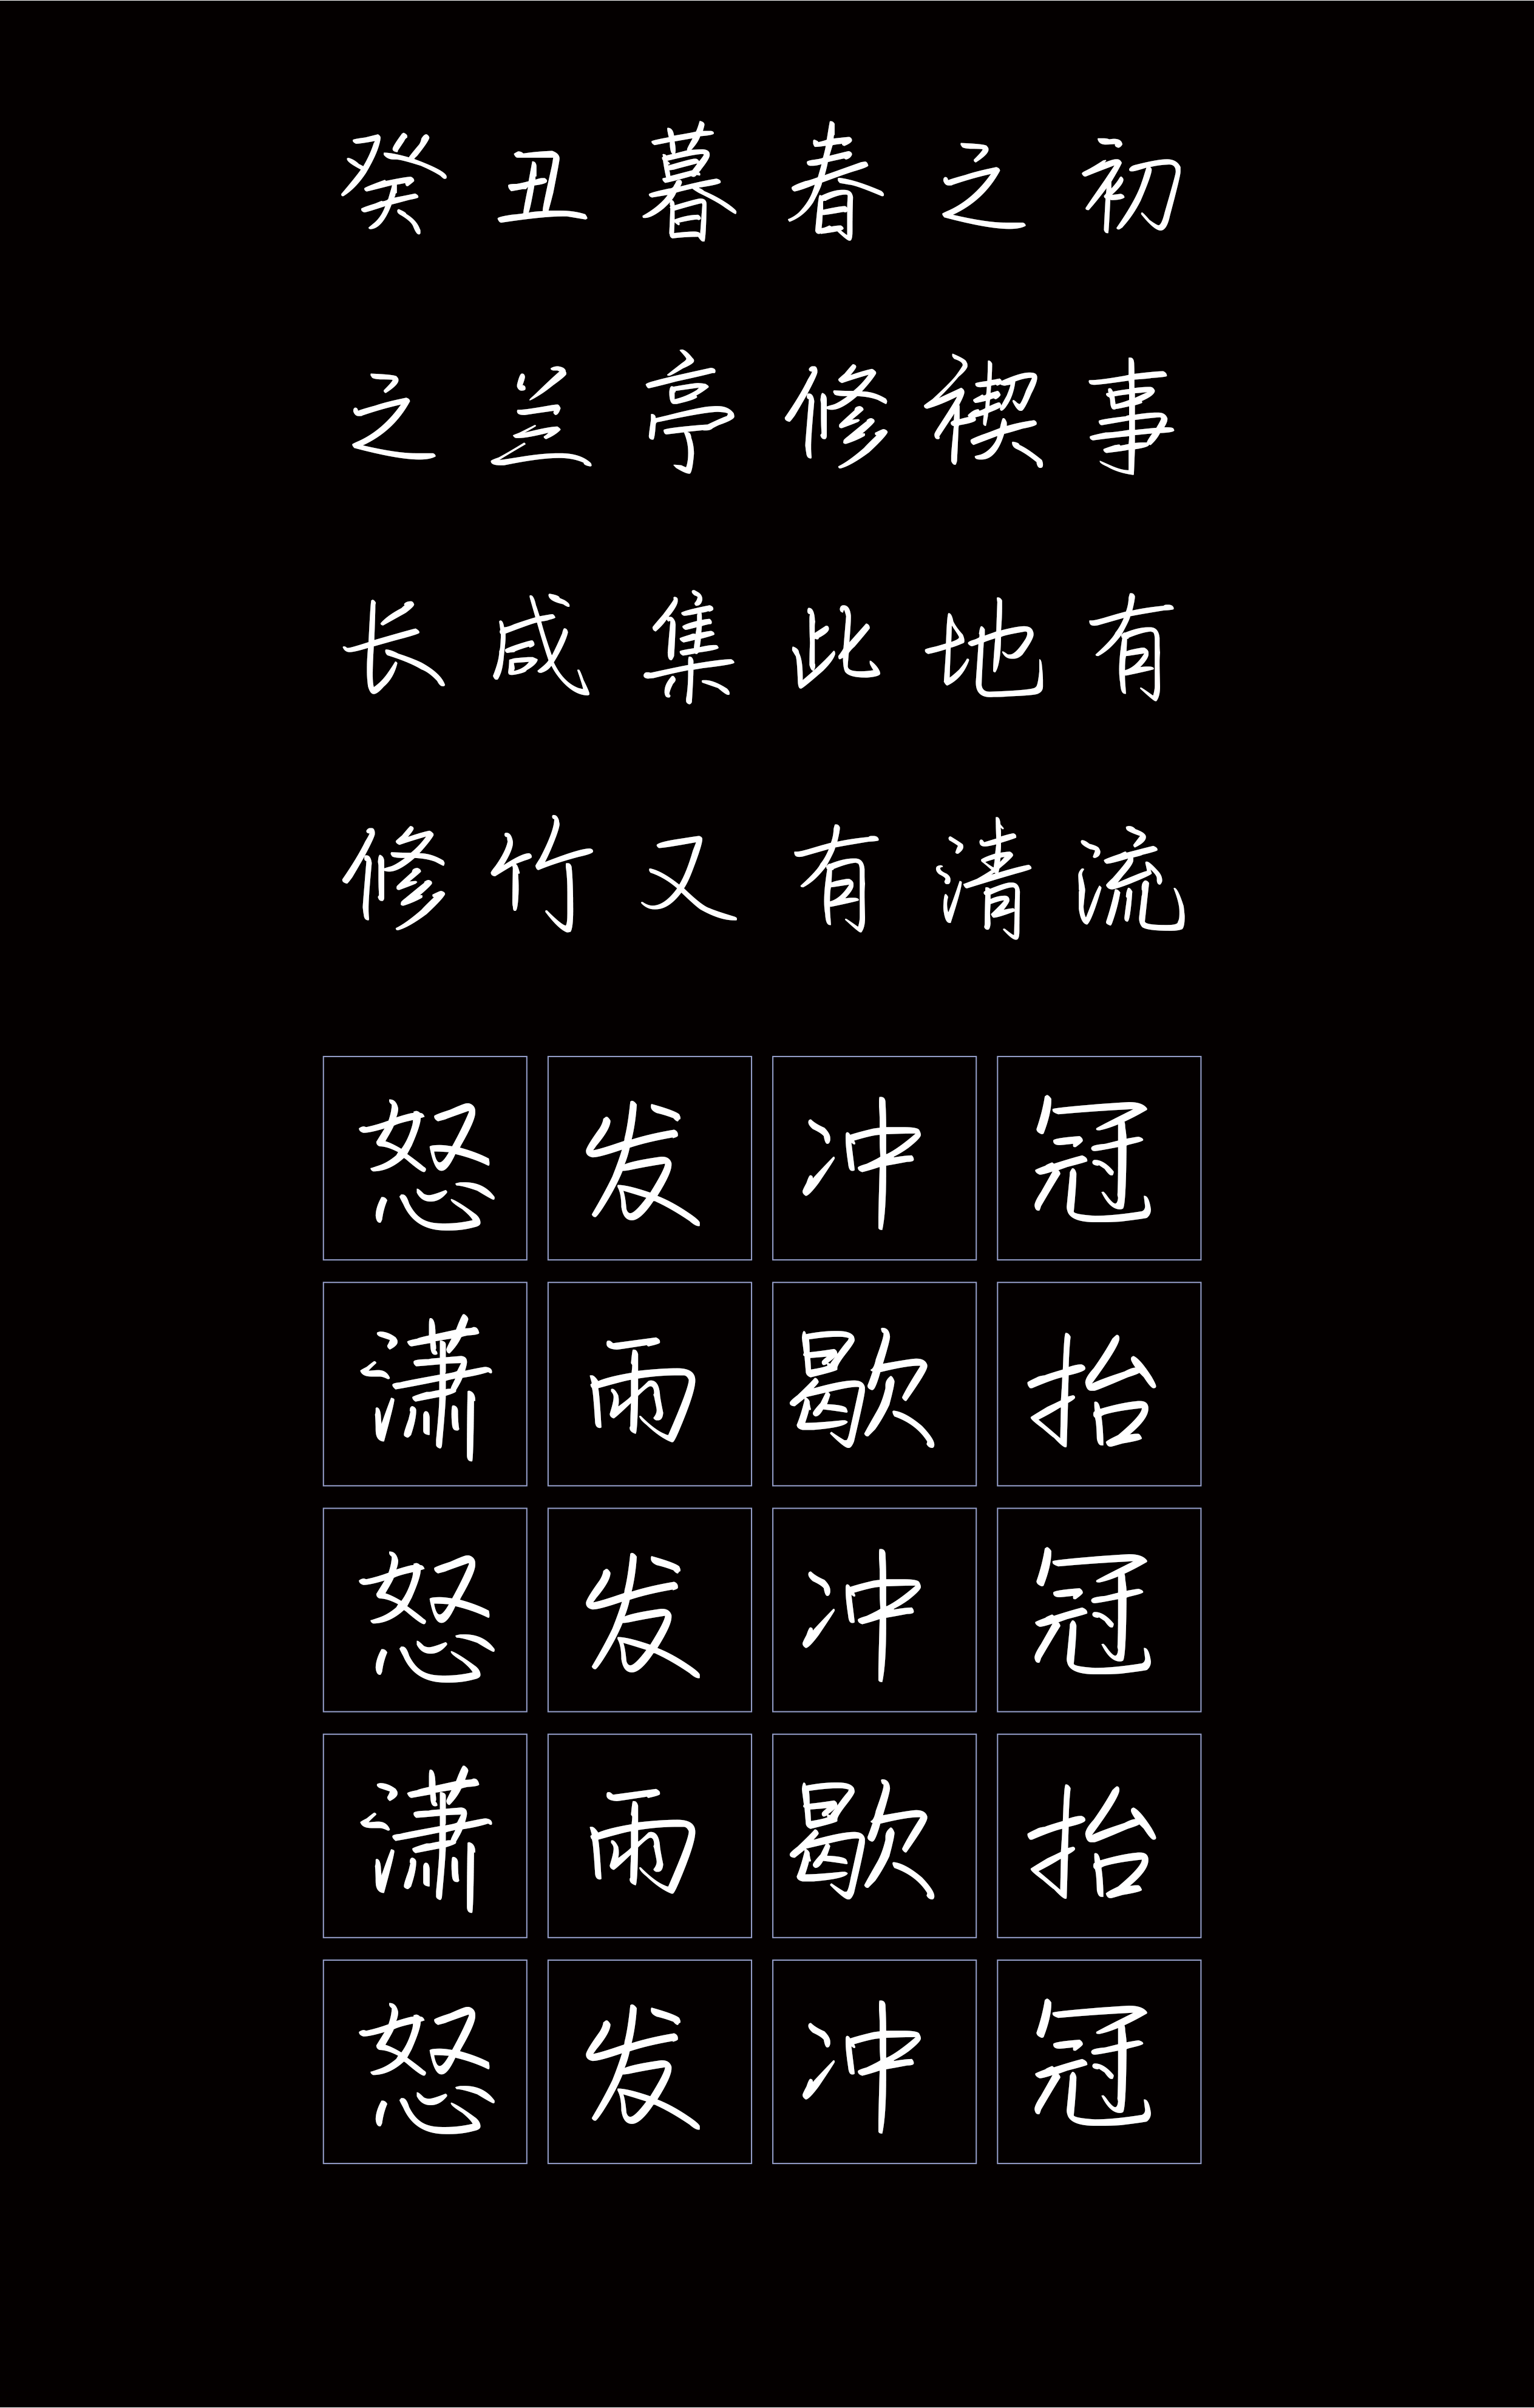 癸丑暮春之初
之兰亭修禊事
长咸集比地有
修竹又有清流
怒发冲冠
潇雨歇抬
怒发冲冠
潇雨歇抬
怒发冲冠